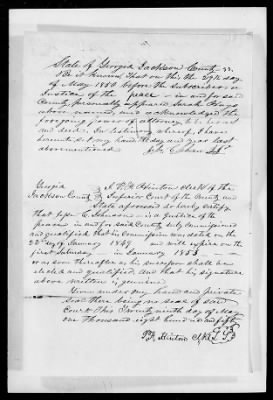 State of Georgia Jackson County ss.
Be it known that on this the 29th day
of May 1850 before the Subscriber a
Justice of the peace in and for said
County personally appeared Sarah Hays
above named and acknowledged the
foregoing power of attorney to be her act
and deed. In testimony whereof I have
hereunto set my hand the day and year last
above mentioned.
Georgia
Jackson County
I P. F. Hinton Clerk of the
Superior Court of the County and
State aforesaid do hereby certify
that C Johnson is a Justice of the
peace in and for said County duly commissioned
and qualified that his Commission was dated on the
22d day of January 1849 and will expire on the
first Saturday in January 1853
or as soon thereafter as his successor shall be
elected and qualified and that his signature
above written is genuine.
Given under my hand and private
seal there being no seal of said
Court This Twenty ninth day of May
one Thousand eight hundred and fifty
P. F. Hinton Clk